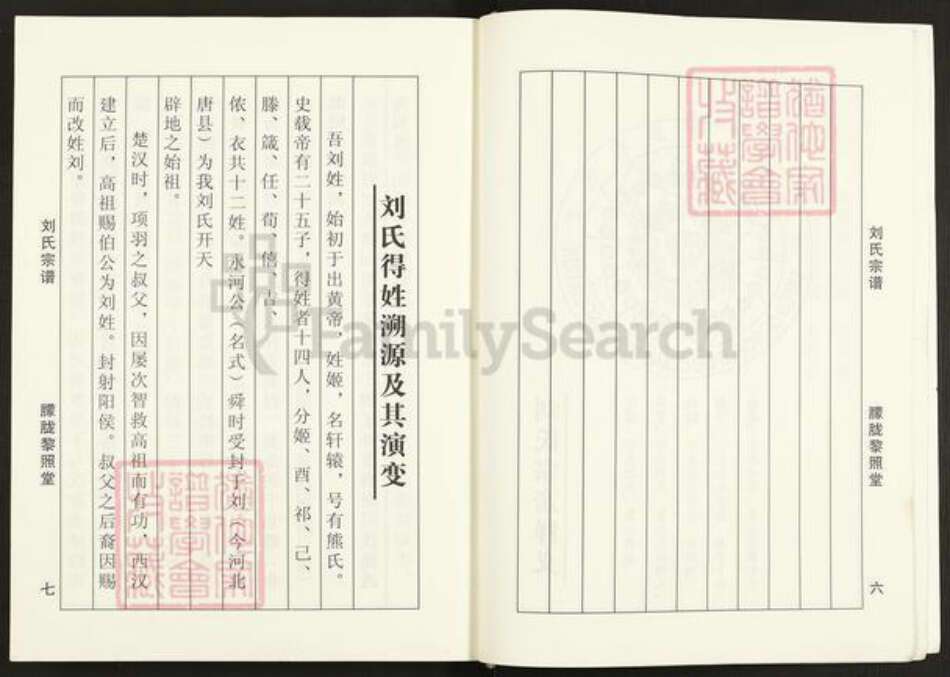 刘氏宗谱
朦胧黎照堂
六
刘氏得姓溯源及其演变
吾刘姓，始初于出黄帝，姓姬，名轩辕，号有熊氏。
史载帝有二十五子，得姓者十四人，分姬、酉、祁、己、
滕、箴、任、荀、僖、吉、
侬、衣共十二姓。永河公（名式）舜时受封于刘（今河北
唐县）为我刘氏开天
辟地之始祖。
楚汉时，项羽之叔父，因屡次智救高祖而有功，西汉
建立后，高祖赐伯公为刘姓。封射阳侯。叔父之后裔因赐
而改姓刘。
刘氏宗谱
朦胧黎照堂
七
FamilySearch